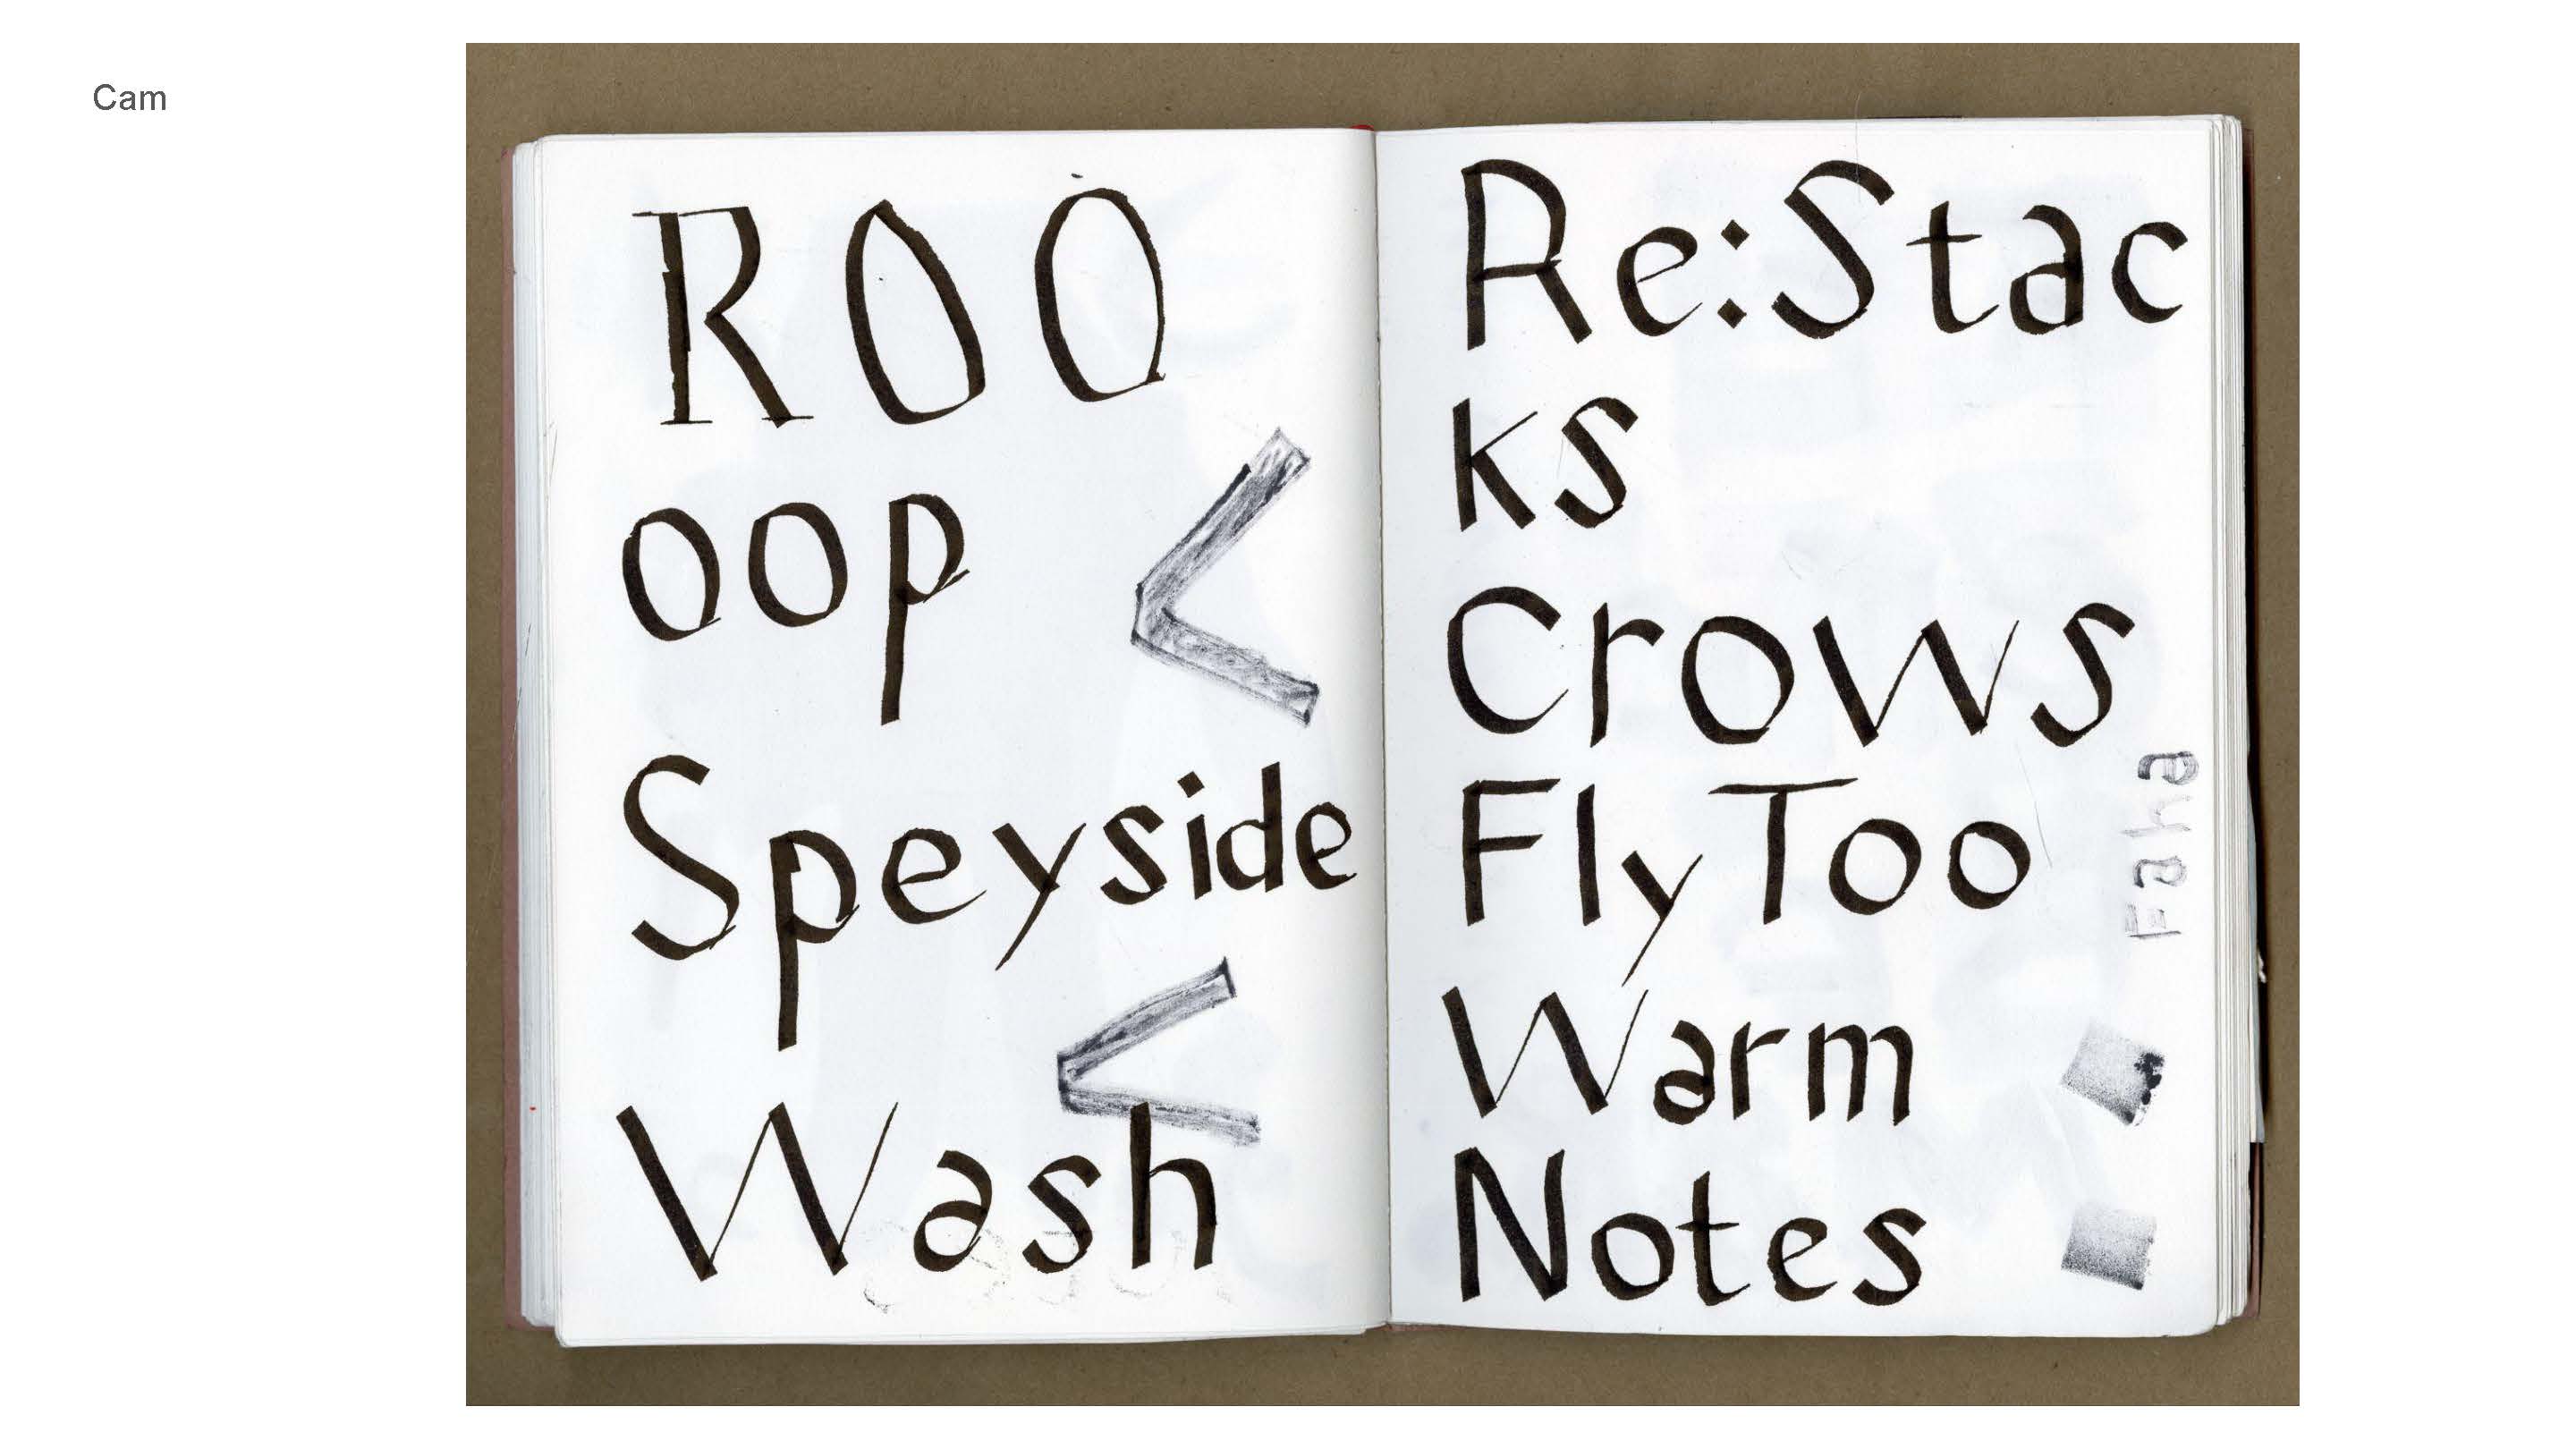 Cam
ROO
oop
Speyside
Wash
Re:Stac
ks
Crows
Fly Too
Warm
Notes
Faha